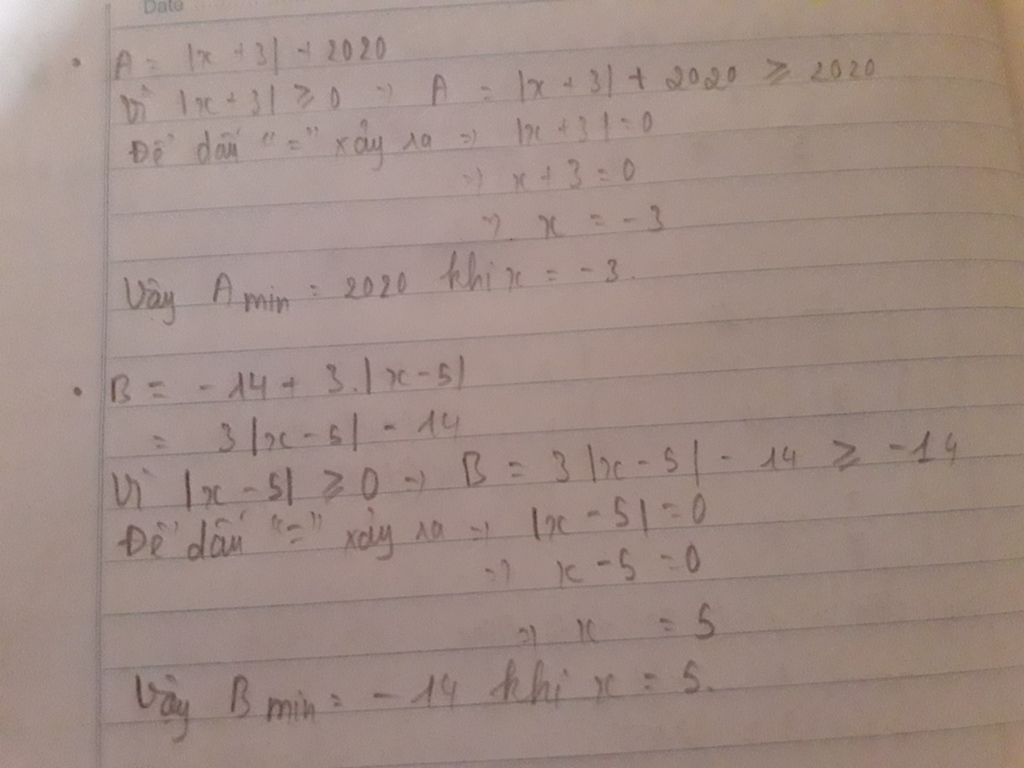 Date
• A = |x + 3| + 2020
Vì |x + 3| ≥ 0 => A = |x + 3| + 2020 ≥ 2020
Để dấu "=" xảy ra => |x + 3| = 0
=> x + 3 = 0
=> x = -3
Vậy A min = 2020 khi x = -3.
• B = -14 + 3.|x - 5|
= 3|x - 5| - 14
Vì |x - 5| ≥ 0 => B = 3|x - 5| - 14 ≥ -14
Để dấu "=" xảy ra => |x - 5| = 0
=> x - 5 = 0
=> x = 5
Vậy B min = -14 khi x = 5.